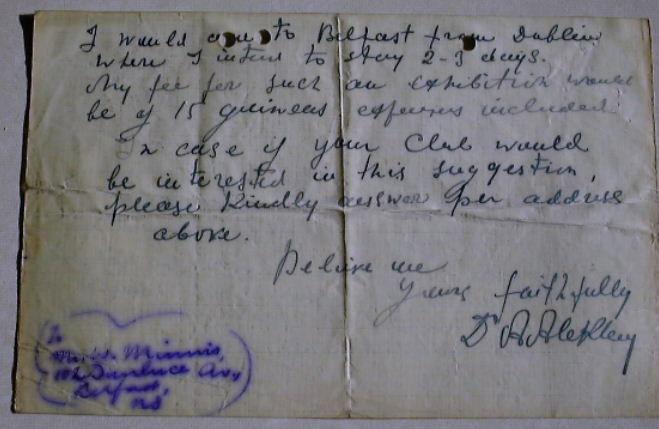 I would come to Belfast from Dublin
where I intend to stay 2-3 days.
My fee for such an exhibition would
be of 15 guineas expenses included
In case if your Club would
be interested in this suggestion,
please kindly answer per address
above.
Believe me
Yours faithfully
Dr
To
Minnis,
Dunluce Av,
Belfast,